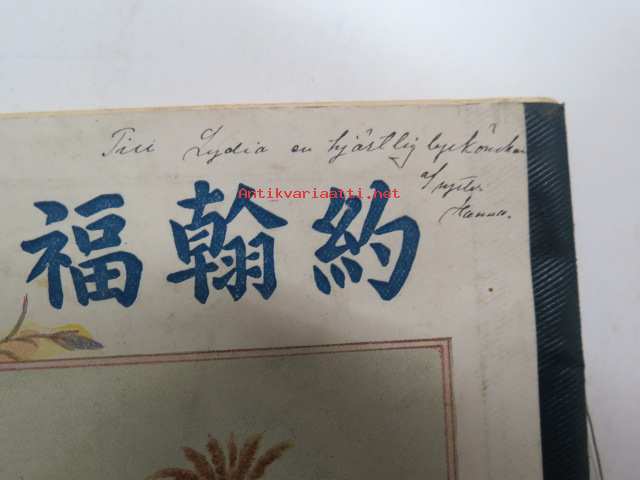 Till Lydia en hjärtlig lyckönskan
af syster
Hanna.
Antikvariaatti.net
約翰福